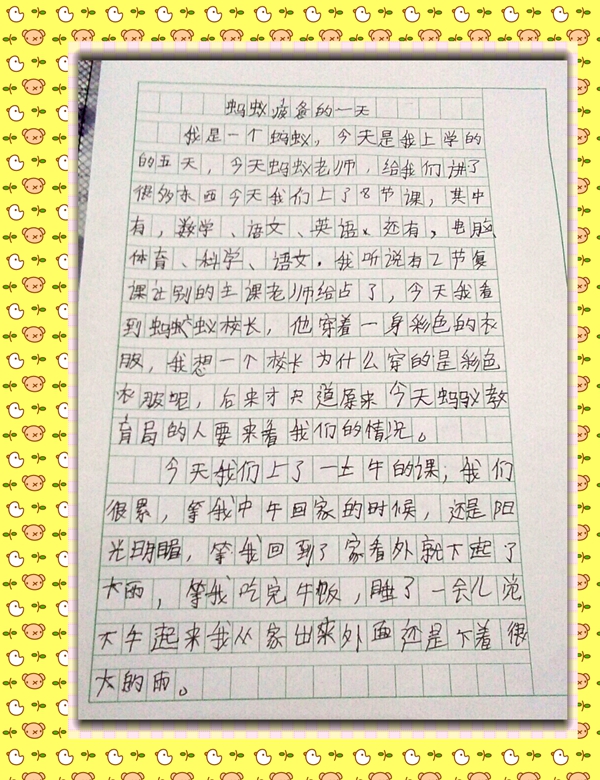 蚂蚁疲惫的一天
我是一个蚂蚁，今天是我上学的
的五天，今天蚂蚁老师，给我们讲了
很多东西今天我们上了8节课，其中
有，数学、语文、英语、还有，电脑
体育、科学、语文．我听说有2节复
课让别的主课老师给占了，今天我看
到蚂蚁校长，他穿着一身彩色的衣
服，我想一个校长为什么穿的是彩色
衣服呢，后来才只道原来今天蚂蚁教
育局的人要来看我们的情况。
今天我们上了一上午的课，我们
很累，等我中午回家的时候，还是阳
光明媚，等我回到了家看外就下起了
大雨，等我吃完午饭，睡了一会儿觉
下午起来我从家出来外面还是下着很
大的雨。